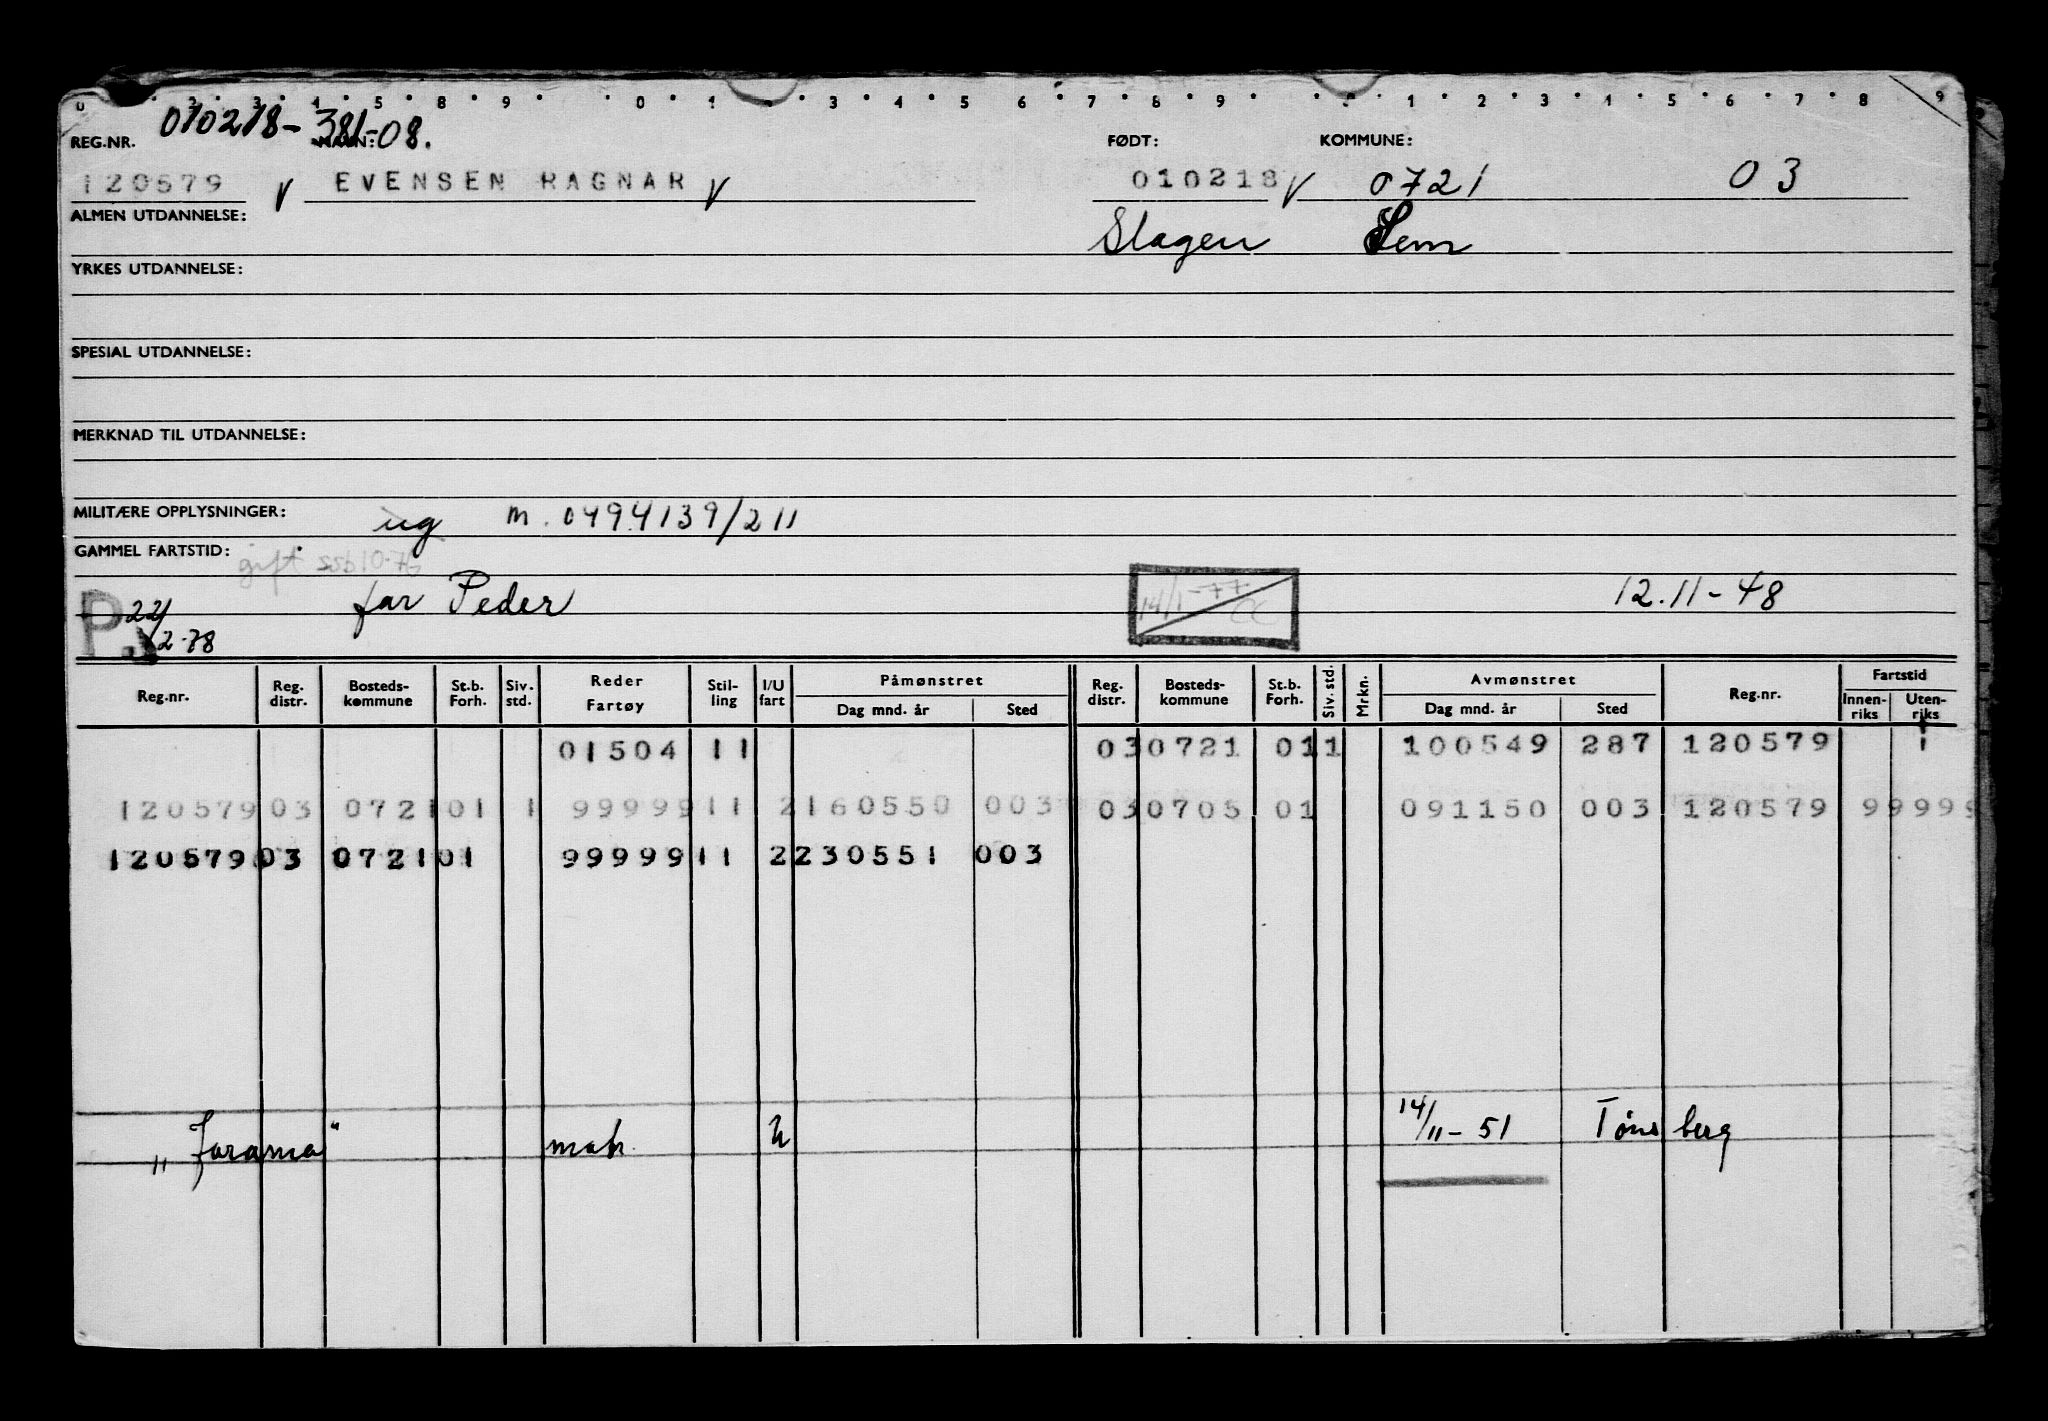 010218-381-08.
REG.NR. NAVN: FØDT: KOMMUNE:
120579 v EVENSEN RAGNAR v 010218 v 0721 03
ALMEN UTDANNELSE: Slagen Sem
YRKES UTDANNELSE:
SPESIAL UTDANNELSE:
MERKNAD TIL UTDANNELSE:
MILITÆRE OPPLYSNINGER: ug m. 0494139/211
GAMMEL FARTSTID: gift
P. 22/2-78 far Peder 14/1-77 12.11-48
Reg.nr. Reg. distr. Bosteds-kommune St.b. Forh. Siv. std. Reder Fartøy Stil-ling I/U fart Påmønstret Dag mnd. år Sted Reg. distr. Bosteds-kommune St.b. Forh. Siv. std. Mrkn. Avmønstret Dag mnd. år Sted Reg.nr. Fartstid Innen-riks Uten-riks
01504 11 03 0721 01 1 100549 287 120579 1
120579 03 0721 01 1 99999 11 2 160550 003 03 0705 01 091150 003 120579 99999
120579 03 0721 01 99999 11 2 230551 003
"Jarama" matr. U 14/11-51 Tønsberg